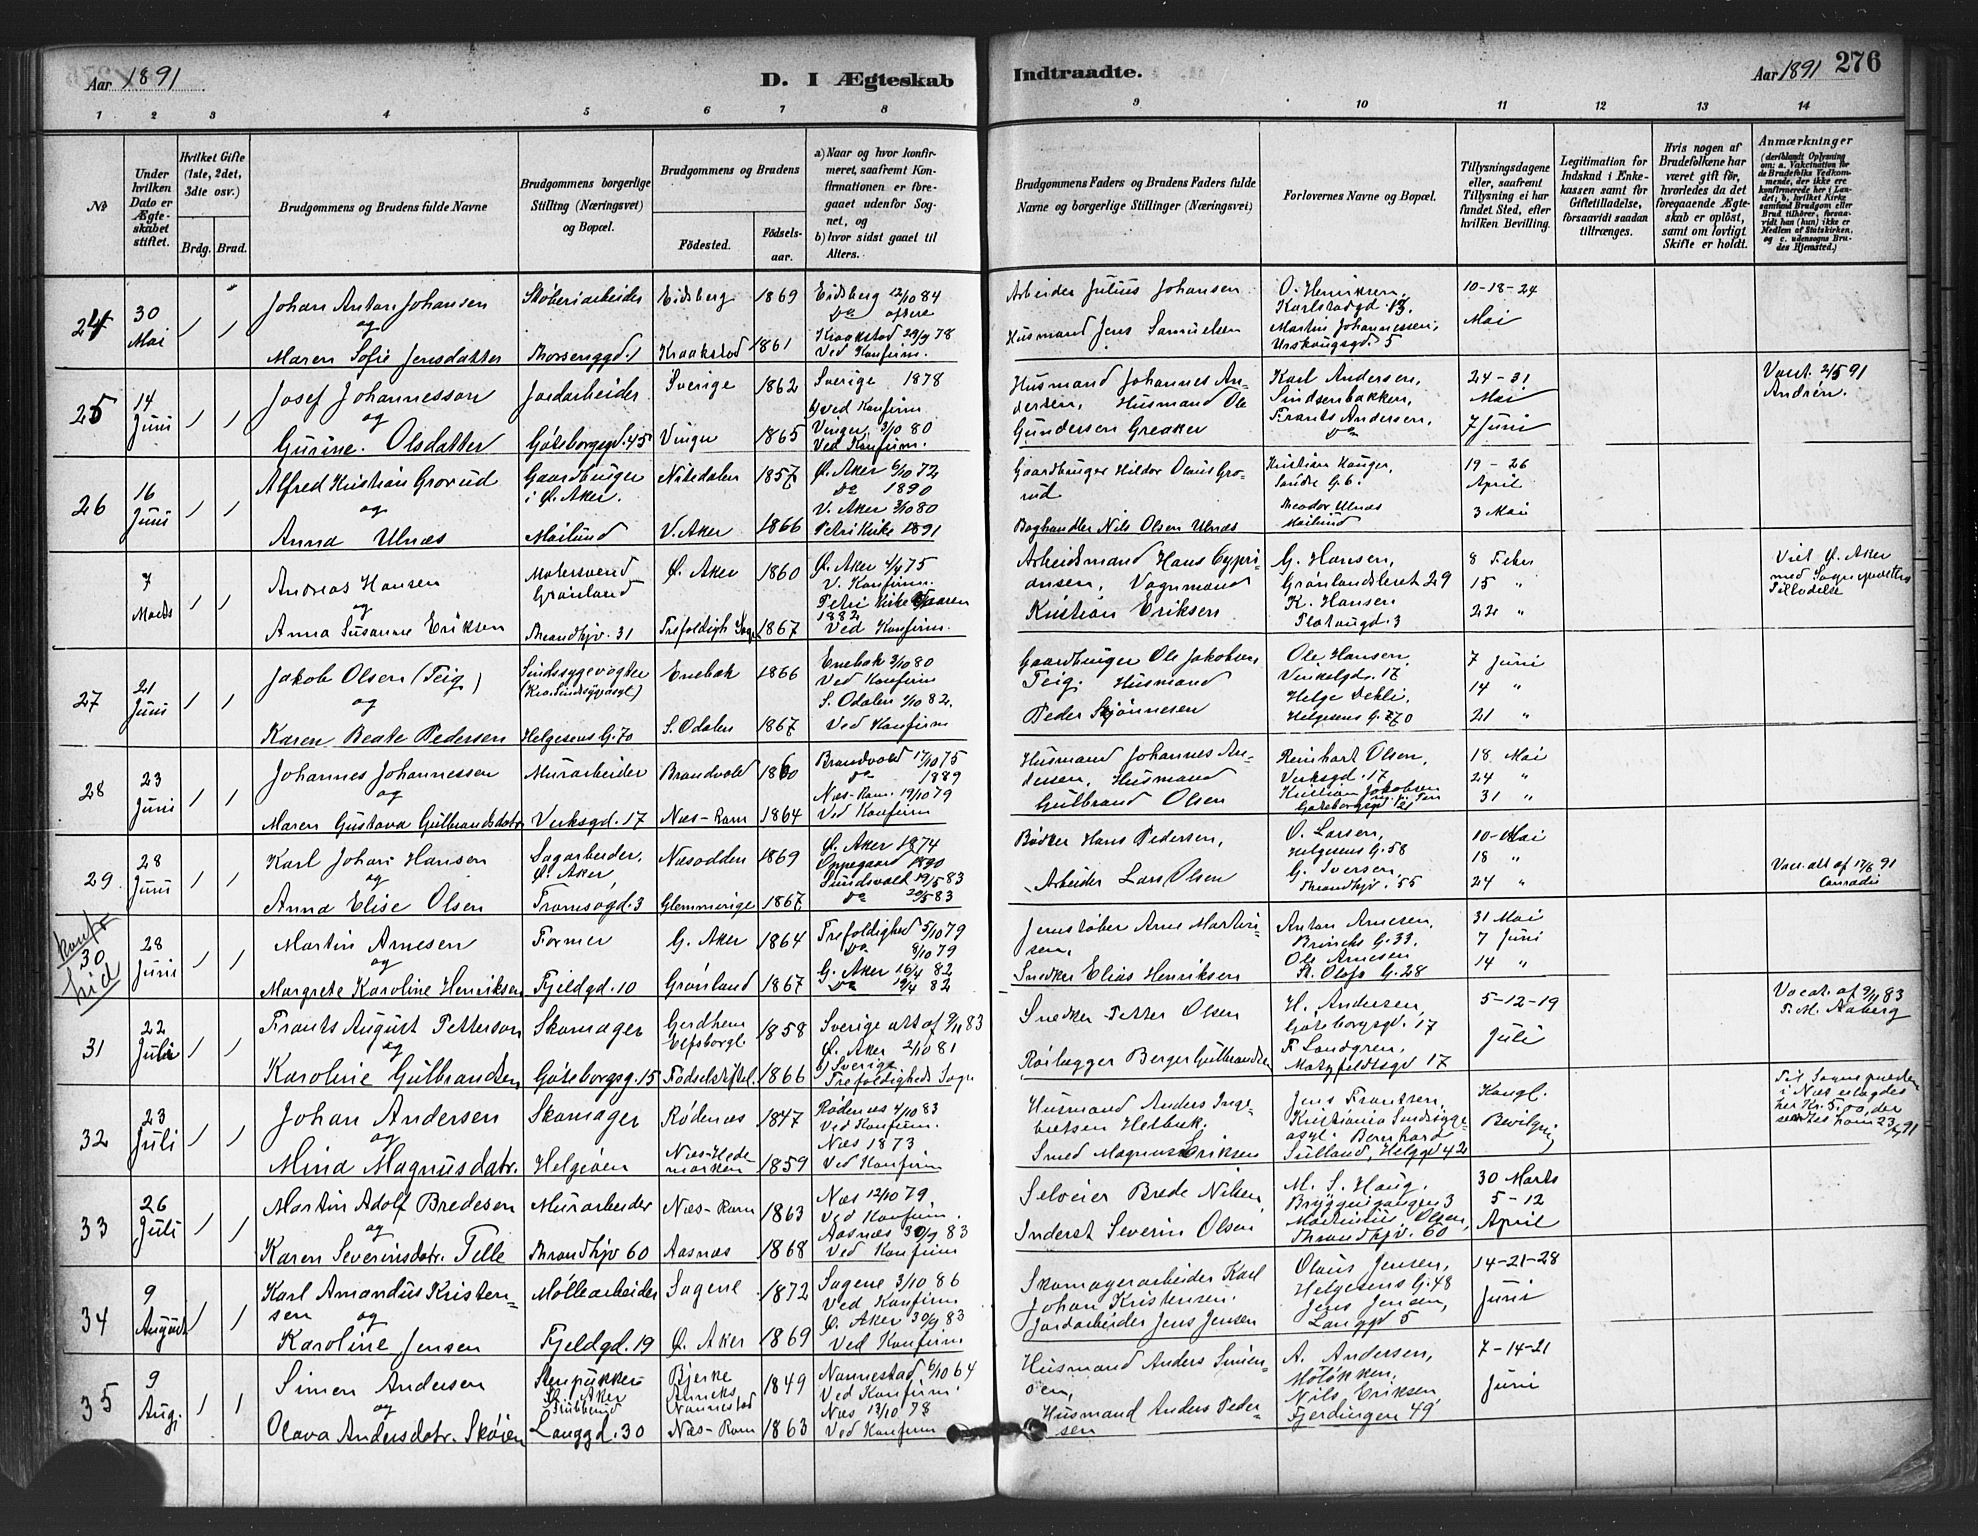 Aar 1891
D. I Ægteskab
Indtraadte.
Aar 1891 276
1 2 3 4 5 6 7 8 9 10 11 12 13 14
No.
Under hvilken Dato er Ægteskabet stiftet.
Hvilket Gifte (1ste, 2det, 3die osv.)
Brdg. Brud.
Brudgommens og Brudens fulde Navne
Brudgommens borgerlige Stilling (Næringsvei) og Bopæl.
Brudgommens og Brudens
Födested.
Födselsaar.
a) Naar og hvor konfirmeret, saafremt Konfirmationen er foregaaet udenfor Sognet, og
b) hvor sidst gaaet til Alters.
Brudgommens Faders og Brudens Faders fulde Navne og borgerlige Stillinger (Næringsvei)
Forlovernes Navne og Bopæl.
Tillysningsdagene eller, saafremt Tillysning ei har fundet Sted, efter hvilken Bevilling.
Legitimation for Indskud i Enkekassen samt for Giftetilladelse, forsaavidt saadan tiltrænges.
Hvis nogen af Brudefolkene har været gift för, hvorledes da det foregaaende Ægteskab er oplöst, samt om lovligt Skifte er holdt.
Anmærkninger
24 30 Mai 1 1
Johan Anton Johansen og Maren Sofie Jensdatter
Skoberiarbeider Thorsenggd. 1
Eidsberg 1869
Kraakstad 1861
Eidsberg 12/10 84 Do oftere
Kraakstad 29/9 78 Ved Konfirm.
Arbeider Julius Johansen
Husmand Jens Samuelsen
O. Henriksen, Karlstadgd. 13.
Martin Johannessen, Urskougsgd. 5
10-18-24 Mai
25 14 Juni 1 1
Josef Johannesson og Gurine Olsdatter
Jordarbeider Göteborgsgd. 45
Sverige 1862
Vinger 1865
Sverige 1878 b) ved Konfirm.
Vinger 3/10 80 Ved Konfirm.
Husmand Johannes Andersen, Husmand Ole Gundersen Greaker
Karl Andersen, Sindsenbakken,
Frants Andersen, Do
24-31 Mai 7 Juni
Vacst. 2/5 91 Andrén.
26 16 Juni 1 1
Alfred Kristian Grorud og Anna Ulnæs
Gaardbruger i Ø. Aker. Mailund
Nitedalen 1857
V. Aker 1866
Ø. Aker 6/10 72 Do 1890
V. Aker 3/10 80 Petri Kirke 1891
Gaardbruger Hildor Olaus Grorud
Boghandler Nils Olsen Ulnæs
Kristian Hauger, søndre G. 6.
Theodor Ulnæs Mailund
19-26 April 3 Mai
7 Marts 1 1
Andreas Hansen og Anna Susanne Eriksen
Malersvend Grønland Thrandhjv. 31
Ø. Aker 1860
Trefoldigh Sogn 1867
Ø. Aker 4/4 75 V. Konfirm.
Petri Kirke Vaaren 1882 Ved Konfirm.
Arbeidsmand Hans Cypriansen, Vognmand Kristian Eriksen
G. Hansen, Grønlandsleret 29
K. Hansen Platougd. 3
8 Feber 15 " 22 "
Viet Ø. Aker med Sognepræstens Tilladelse
27 21 Juni 1 1
Jakob Olsen (Teig) og Karen Beate Pedersen
Sindssygevogter (Kra. Sindsygeasyl) Helgesens G. 70
Enebak 1866
S. Odalen 1867
Enebak 3/10 80 Ved Konfirm
S. Odalen 1/10 82. Ved Konfirm
Gaardbruger Ole Jakobsen, Teig. Husmand Peder Skjønnesen
Ole Hansen, Vinkelgd. 17
Helge Dehli, Helgesens G. 70
7 Juni 14 " 21 "
28 23 Juni 1 1
Johannes Johannessen og Maren Gustava Gulbrandsdatr.
Murarbeider Verksgd. 17
Brandvold 1860
Næs-Rom 1864
Brandvold 17/10 75 Do 1889
Næs-Rom. 19/10 79 Ved Konfirm
Husmand Johannes Andersen, Husmand Gulbrand Olsen
Reinhart Olsen, Verksgd. 17
Kristian Jakobsen Göteborgsgd 21
18 Mai 24 " 31 "
29 28 Juni 1 1
Karl Johan Hansen og Anna Elise Olsen
Sagarbeider, Ø. Aker, Tromsøgd. 3
Næsodden 1869
Glemminge 1867
Ø. Aker 1874 Oppegaard 1890
Sundsvall 19/5 83 Do 20/5 83
Bødker Hans Pedersen,
Arbeider Lars Olsen
O. Larsen, Helgesens G. 58
G. Iversen, Thrandhjv. 55
10-Mai 18 " 24 "
Vac. att af 17/6 91 Conradi
konfr 30 hid
28 Juni 1 1
Martin Arnesen og Margrete Karoline Henriksen
Former Fjeldgd. 10
G. Aker 1864
Grønland 1867
Trefoldighed 5/10 79 Do 8/10 79
G. Aker 16/4 82 Do 19/4 82
Jernstøber Arne Martinisen,
Snedker Elias Henriksen
Anton Arnesen, Brincks G. 33.
Ole Arnesen St. Olafs G. 28
31 Mai 7 Juni 14 "
31 22 Juli 1 1
Frants August Petterson og Karoline Gulbrandsen
Skomager Göteborgsg. 15
Gerdhem Elfsborgl. 1858
Fødselsstiftel. 1866
Sverige att af 9/11 83
Ø. Aker 2/10 81 b) Sverige Trefoldigheds Sogn
Snedker Petter Olsen
Roilægger Berger Gulbrandsen
H. Andersen, Göteborgsgd. 17
F. Landgren, Motzfeldtsgd 17
5-12-19 Juli
Vacat. af 9/11 83 F. M. Aaberg
32 23 Juli 1 1
Johan Andersen og Mina Magnusdatr.
Skomager Helgøen
Rødenæs 1847
Næs-Hedemarken 1859
Rødenæs 4/10 83 Ved Konfirm.
Næs 1873 Ved Konfirm
Husmand Anders Ingebretsen Helbæk.
Smed Magnus Eriksen
Jens Frantzen, Kristiania Sindsygeasyl. Bernhard Sulland, Helggd 42
Kongl. Bevilgning
Til Sognepræsten i Næs erlagdes her Kr. 5.00, der sendtes ham 23/7 91
33 26 Juli 1 1
Martin Adolf Bredesen og Karen Severinsdatr. Telle
Murarbeider Thrandhjv 60
Næs-Rom 1863
Aasnæs 1868
Næs 12/10 79, Ved Konfirm.
Aasnæs 30/9 83 Ved Konfirm
Selveier Brede Nilsen,
Inderst Severin Olsen
M. S. Haug, Bryggurgangen 3
Martinius Olsen, Thrandhjv. 60
30 Marts 5-12 April
34 9 August 1 1
Karl Amandus Kristensen og Karoline Jensen
Møllearbeider Fjeldgd. 19
Sagene 1872
Ø. Aker 1869
Sagene 3/10 86 Ved Konfirm
Ø. Aker 30/9 83 Ved Konfirm
Skomagerarbeider Karl Johan Kristensen.
Jordarbeider Jens Jensen
Olaus Jensen, Helgesens G. 48
Jens Jensen, Langgd 5
14-21-28 Juni
35 9 Aug. 1 1
Simen Andersen og Olava Andersdatr. Skøien
Stenpukker Ø. Aker Langgd. 30
Bjerke Anneks Nannestad 1849
Næs-Rom 1863
Nannestad 6/10 64 Ved Konfirm.
Næs 13/10 78 Ved Konfirm
Husmand Anders Simensen,
Husmand Anders Pedersen
A. Andersen, Holøkken,
Nils Eriksen, Fjerdingen 49
7-14-21 Juni